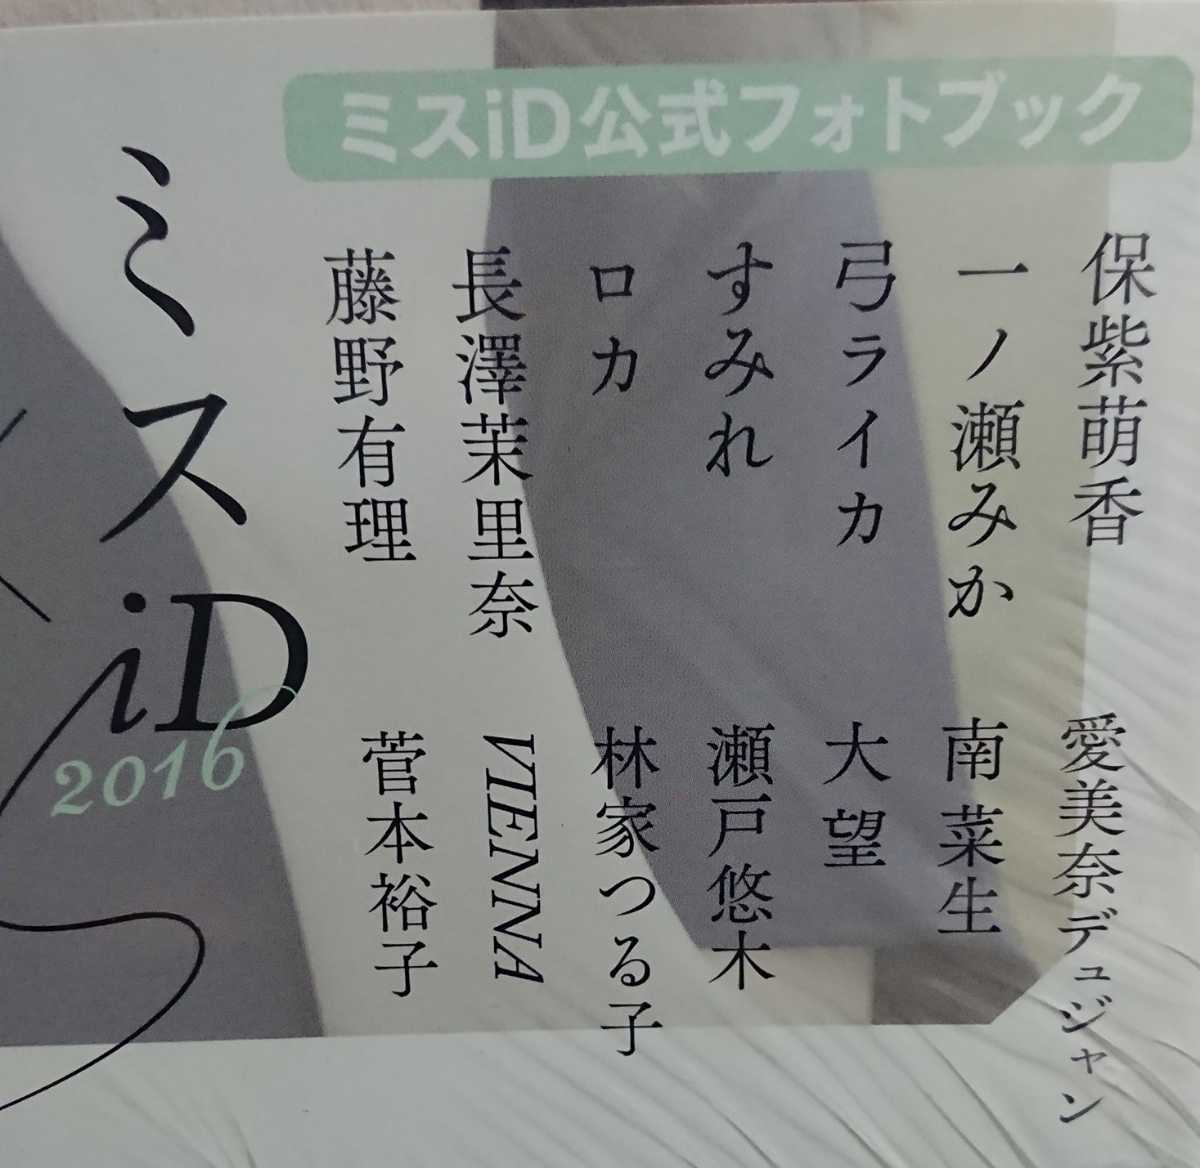 ミスiD公式フォトブック
保紫萌香
一ノ瀬みか
弓ライカ
すみれ
ロカ
長澤茉里奈
藤野有理
愛美奈デュジャン
南菜生
大望
瀬戸悠木
林家つる子
VIENNA
菅本裕子
ミスiD
2016